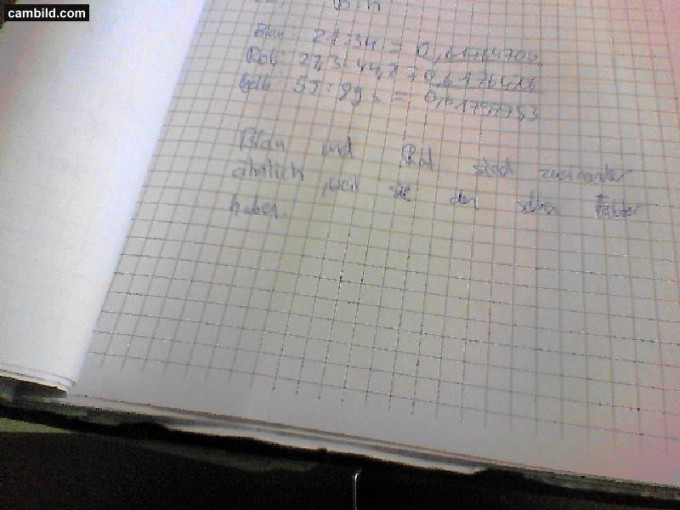 cambild.com
Blau: 21:34 = 0,61764704
Rot: 27,3:44,2 = 0,6176470
Gelb: 55:89 = 0,61797753
Blau und Rot sind zueinander
ähnlich, weil sie den selben Faktor
haben.